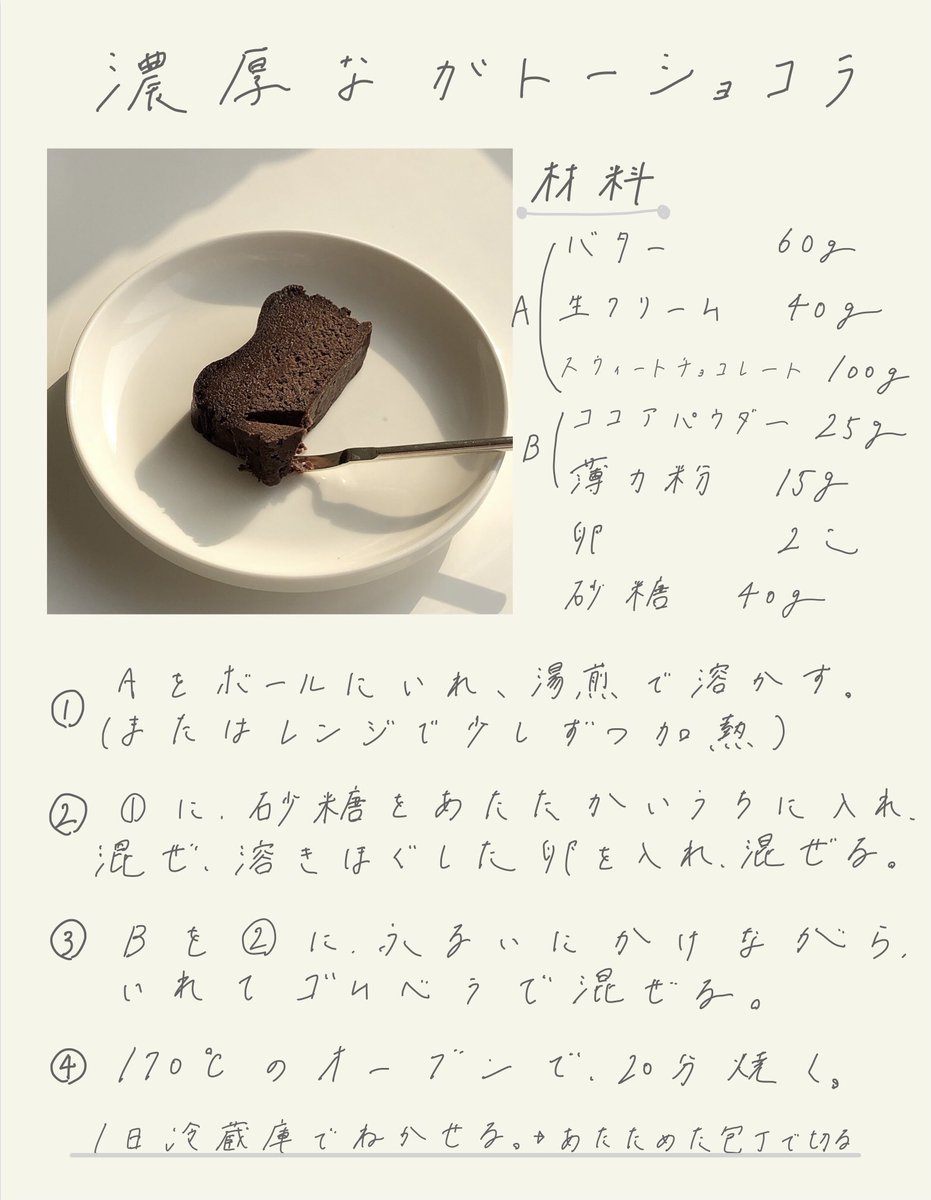 濃厚ながトーショコラ
材料
A
バター 60g
生クリーム 40g
スウィートチョコレート 100g
B
ココアパウダー 25g
薄力粉 15g
卵 2こ
砂糖 40g
① Aをボールにいれ、湯煎で溶かす。
(またはレンジで少しずつ加熱)
② ①に、砂糖をあたたかいうちに入れ、
混ぜ、溶きほぐした卵を入れ、混ぜる。
③ Bを②に、ふるいにかけながら、
いれてゴムベラで混ぜる。
④ 170℃のオーブンで、20分焼く。
1日冷蔵庫でねかせる。→あたためた包丁で切る